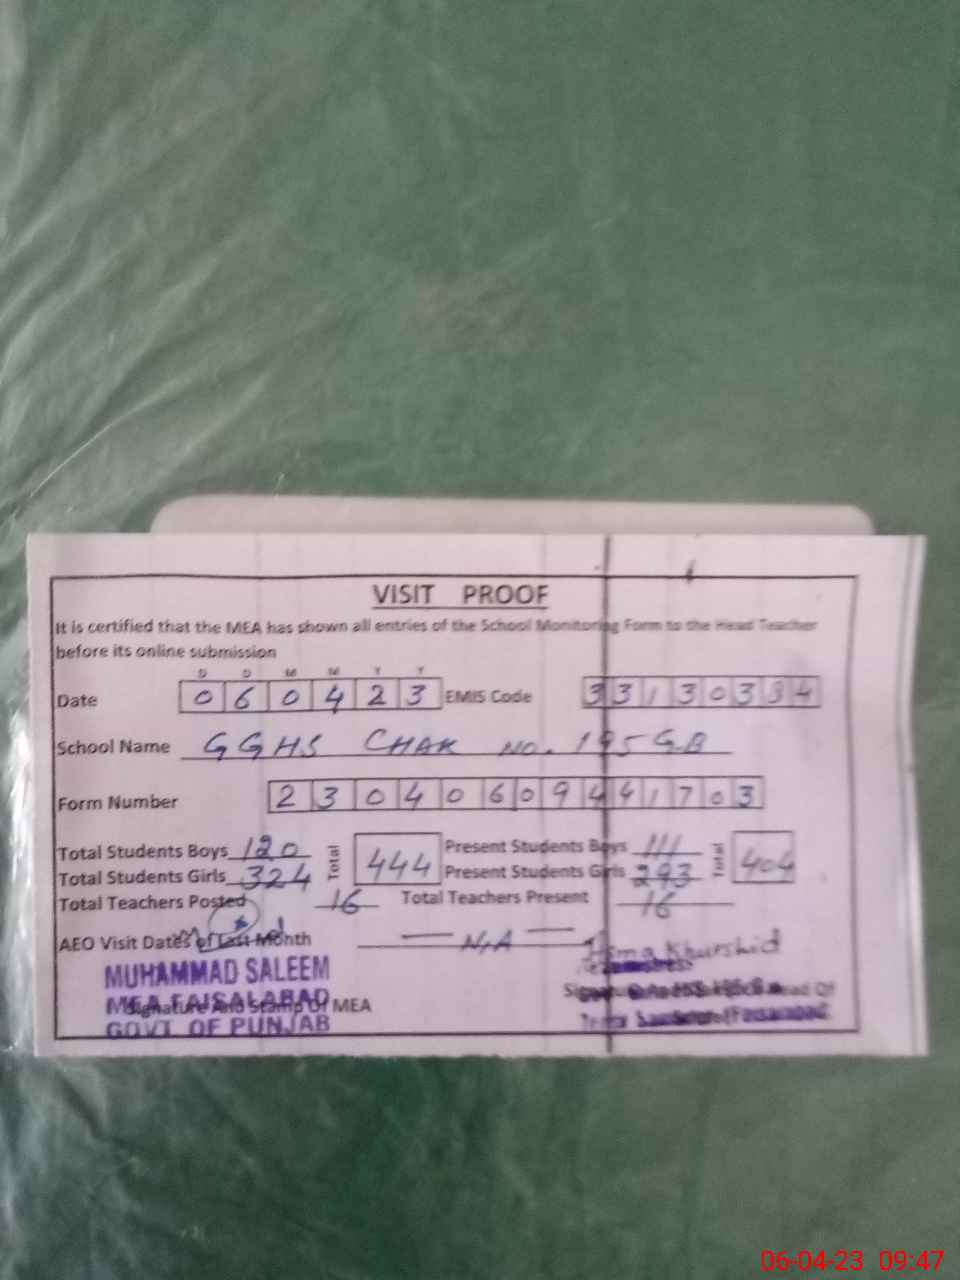 VISIT PROOF
It is certified that the MEA has shown all entries of the School Monitoring Form to the Head Teacher
before its online submission
D D M M Y Y
Date 0 6 0 4 2 3 EMIS Code 3 3 1 3 0 3 3 4
School Name GGHS CHAK NO. 195 GB
Form Number 2 3 0 4 0 6 0 9 4 4 1 7 0 3
Total Students Boys 120 Total 444 Present Students Boys 111 Total 404
Total Students Girls 324 Present Students Girls 293
Total Teachers Posted 16 Total Teachers Present 16
AEO Visit Dates of Last Month N/A
Khurshid
MUHAMMAD SALEEM
MEA FAISALABAD
Signature And Stamp Of MEA
GOVT OF PUNJAB
Head Of
06-04-23 09:47